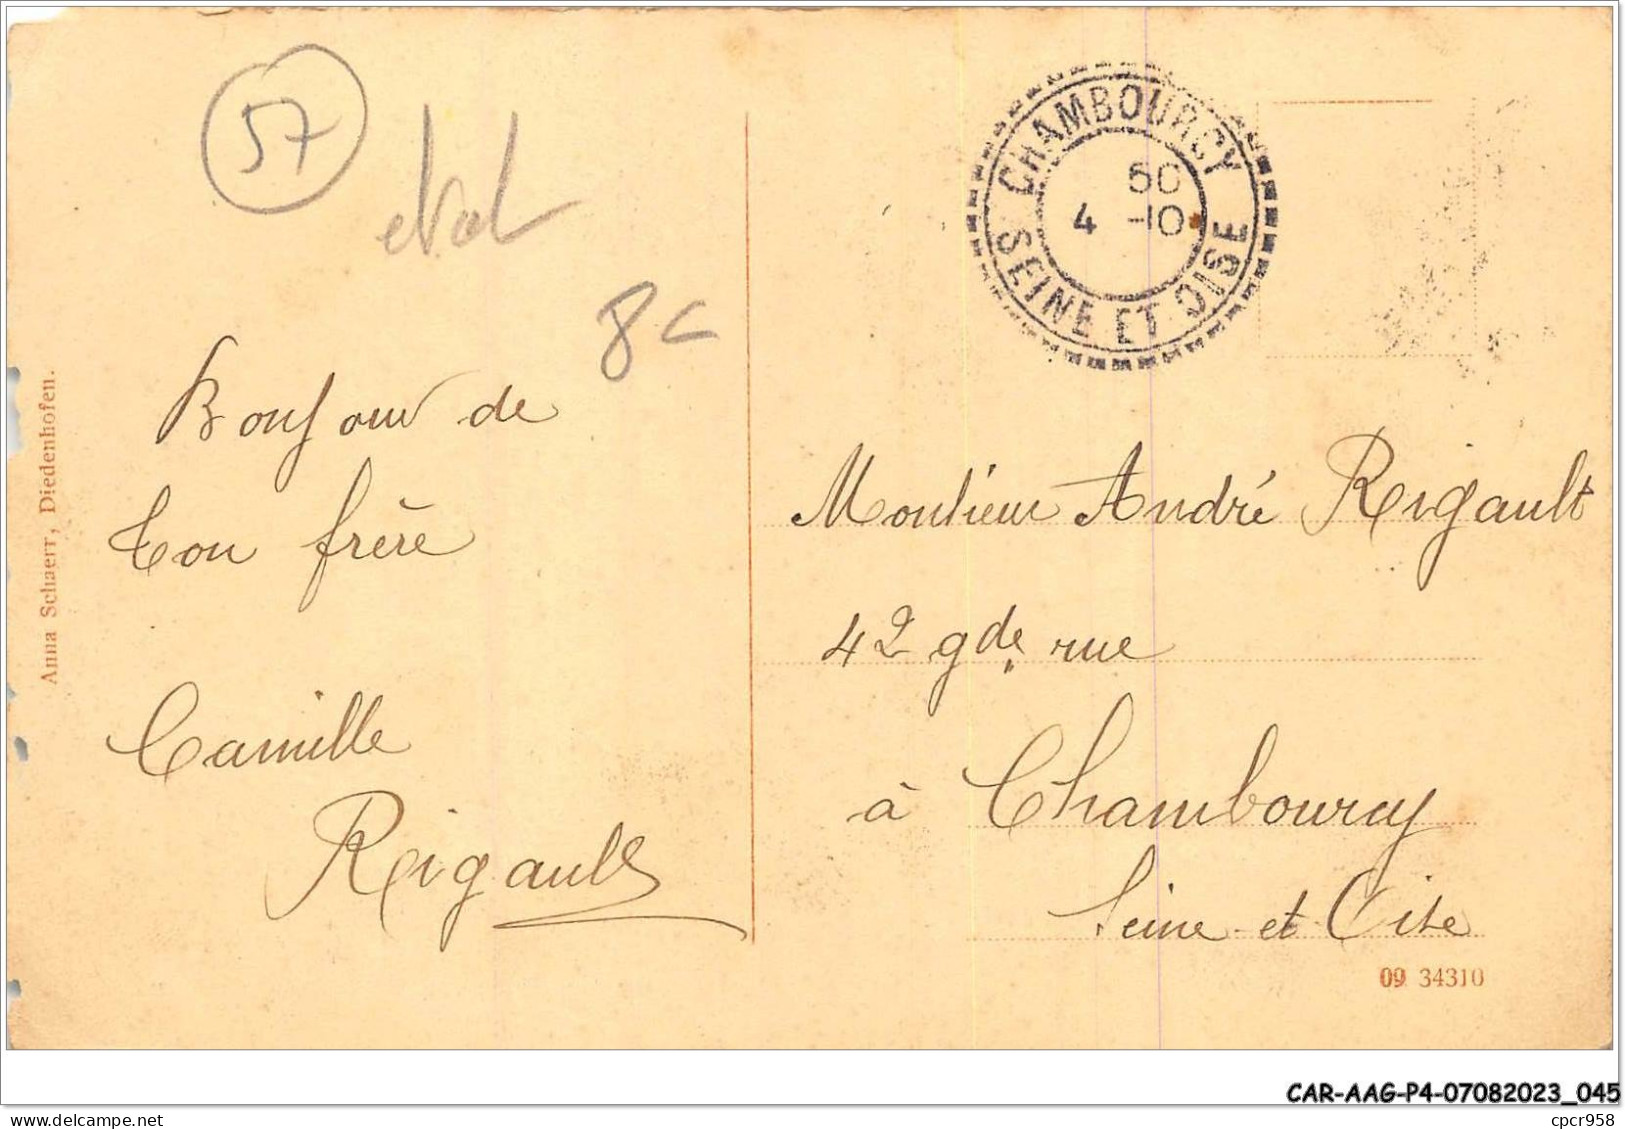 57
8€
CHAMBOURCY
50
4 -10
SEINE ET OISE
Anna Schaerr, Diedenhofen.
Bonjour de
ton frère
Camille
Rigault
Monsieur André Rigault
42 gde rue
à Chambourcy
Seine et Oise
09 34310
CAR-AAG-P4-07082023_045
www.delcampe.net
cpcr958